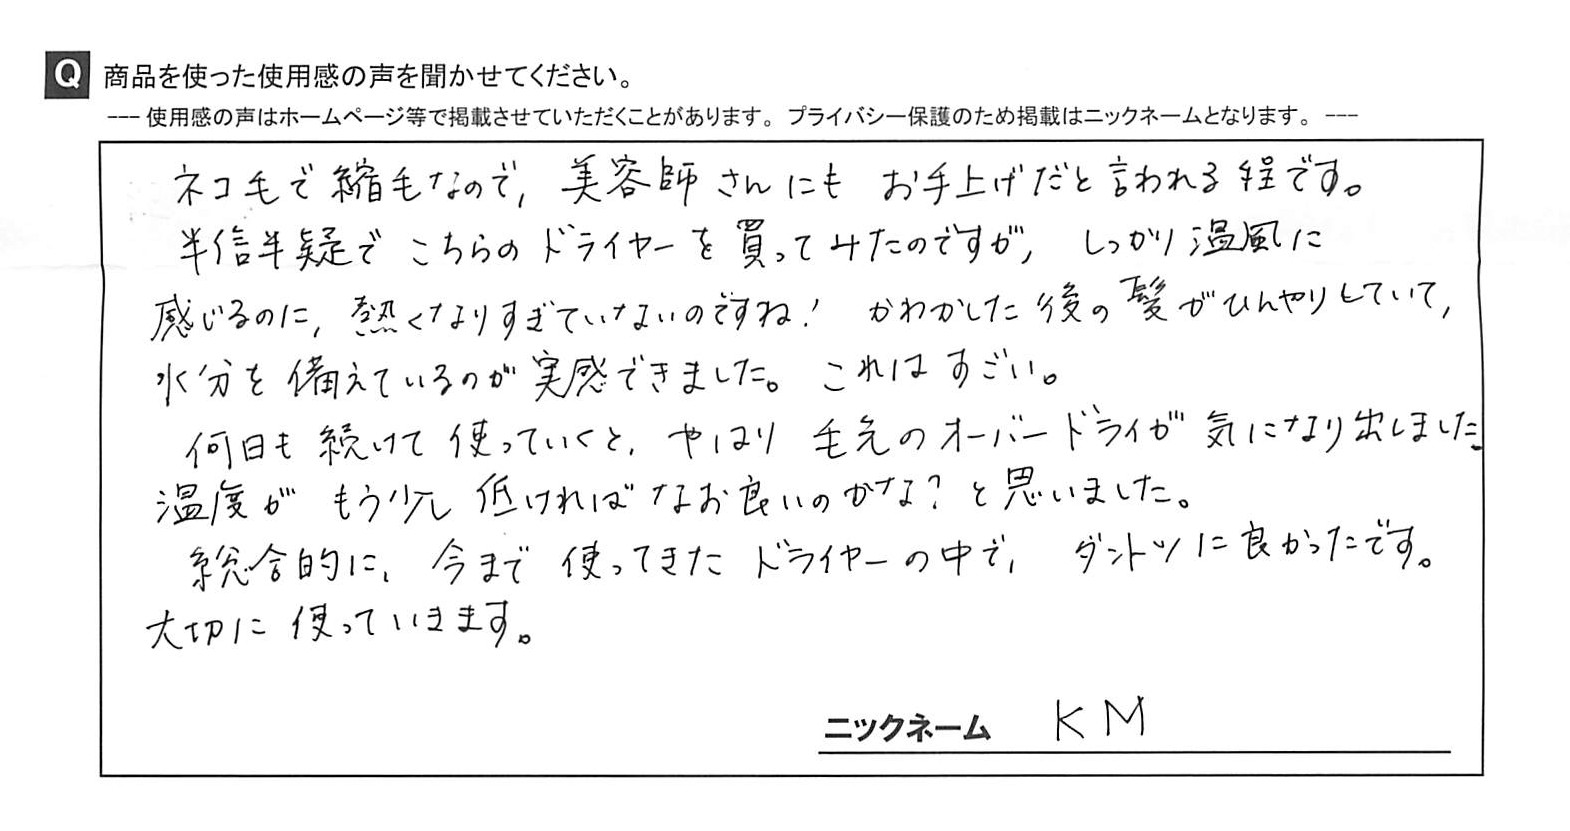 Q 商品を使った使用感の声を聞かせてください。
--- 使用感の声はホームページ等で掲載させていただくことがあります。プライバシー保護のため掲載はニックネームとなります。 ---
ネコ毛で縮毛なので、美容師さんにも お手上げだと言われる程です。
半信半疑で こちらのドライヤーを買ってみたのですが、しっかり温風に
感じるのに、熱くなりすぎていないのですね! かわかした後の髪がひんやりしていて、
水分を備えているのが実感できました。これはすごい。
何日も続けて使っていくと、やはり毛先のオーバードライが気になり出しました
温度が もう少し低ければなお良いのかな?と思いました。
総合的に、今まで使ってきたドライヤーの中で、ダントツに良かったです。
大切に使っていきます。
ニックネーム KM